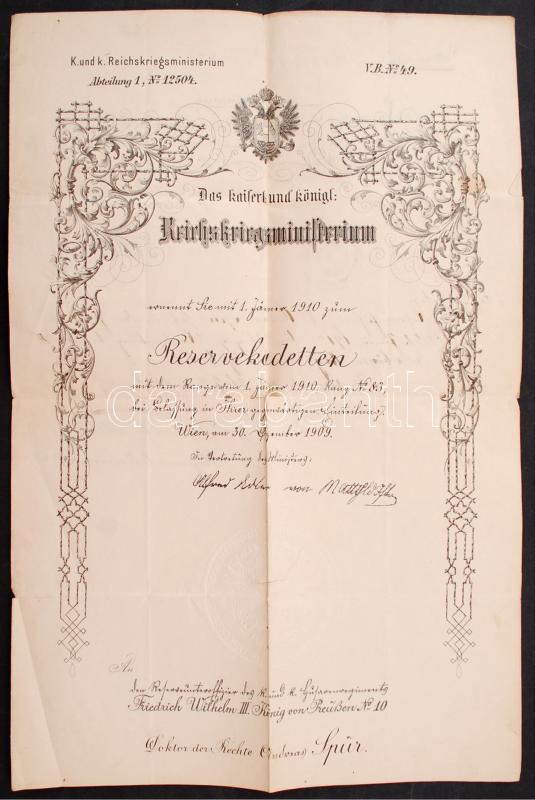 K. und k. Reichskriegsministerium
Abteilung 1, No 12504.
V.B. No 49.
Das kaiserl: und königl:
Reichskriegsministerium
ernennt Sie mit 1. Jänner 1910 zum
Reservekadetten
mit dem Range vom 1. Jänner 1910, Rang No 85,
bei Belassung in Ihrer gegenwärtigen Einteilung.
Wien, am 30. Dezember 1909.
In Vertretung des Ministers:
von
An
den Reserveunteroffizier des k. und k. Husarenregiments
Friedrich Wilhelm III. König von Preußen No 10
Doktor der Rechte Andreas Spur.
darabanth